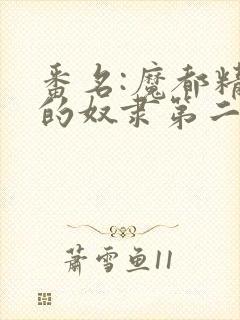 番名:魔都精
的奴隶第二
萧雪鱼11